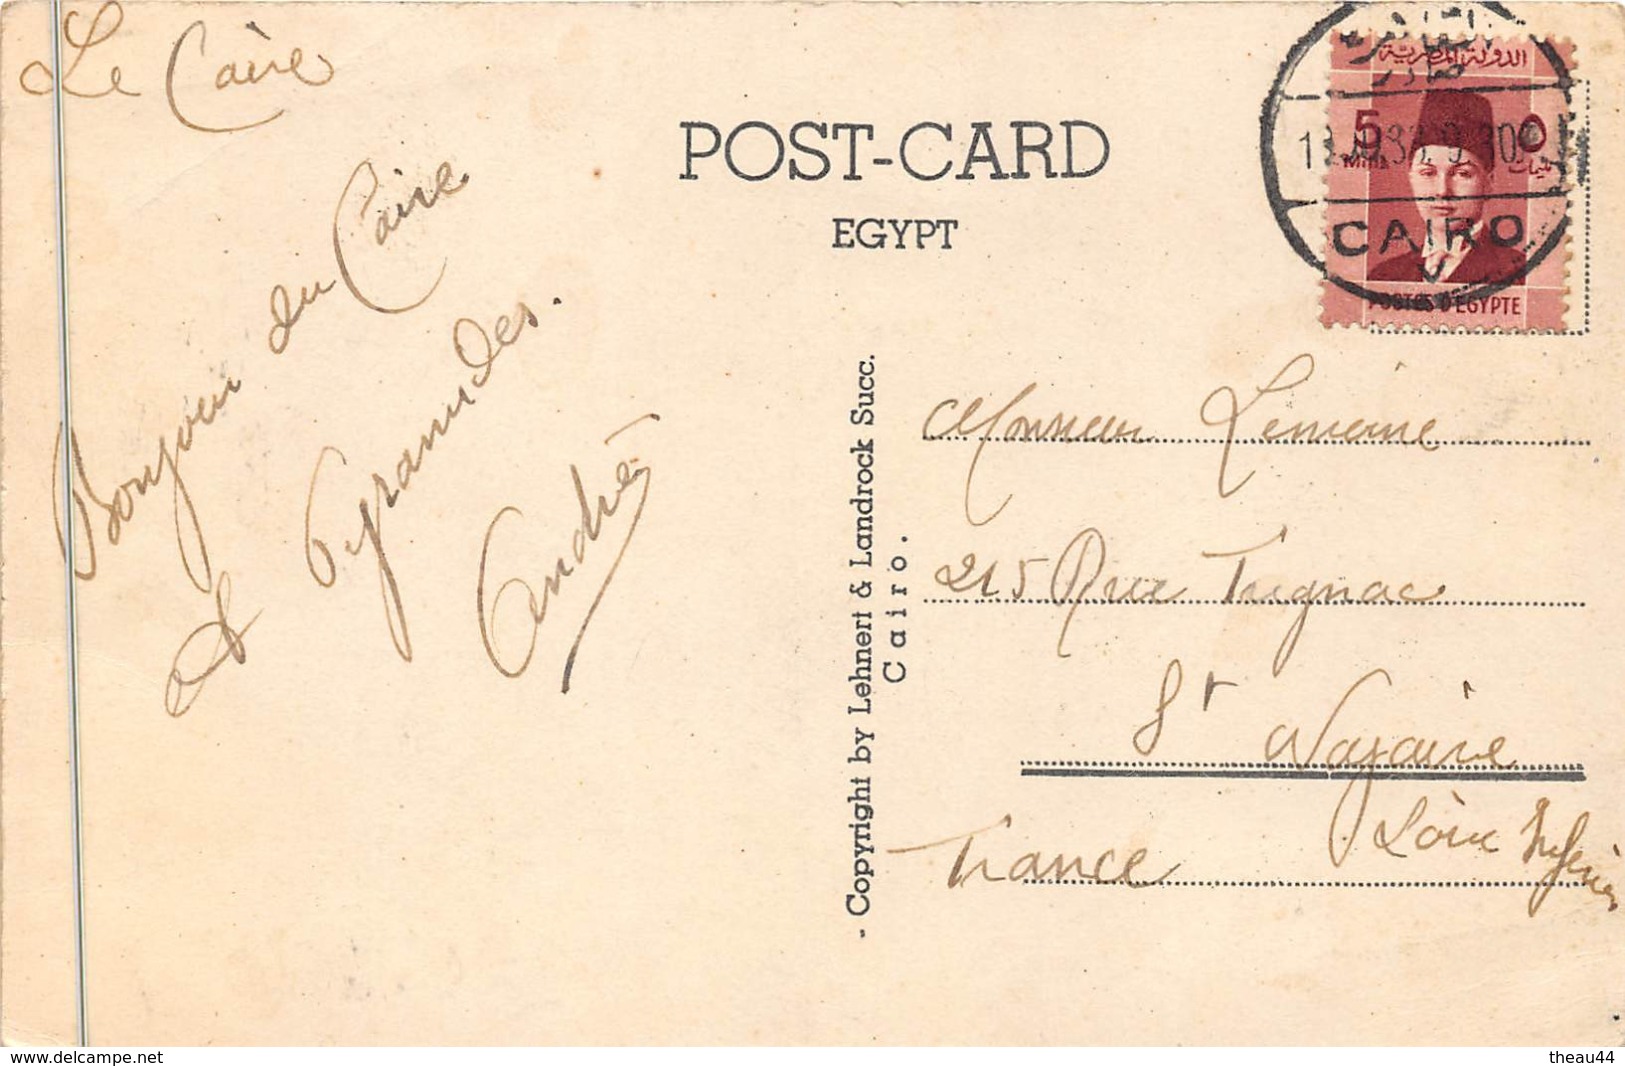 Le Caire
Bonjour du Caire
et Pyramides.
André
POST-CARD
EGYPT
- Copyright by Lehnert & Landrock Succ.
Cairo.
القاهرة
صادر
CAIRO
V
الدولة المصرية
5 ٥
Mills مليمات
POSTES D'EGYPTE
Monsieur Lemoine
215 Rue Trignac
St Nazaire
Loire Inferieure
France
www.delcampe.net
theau44